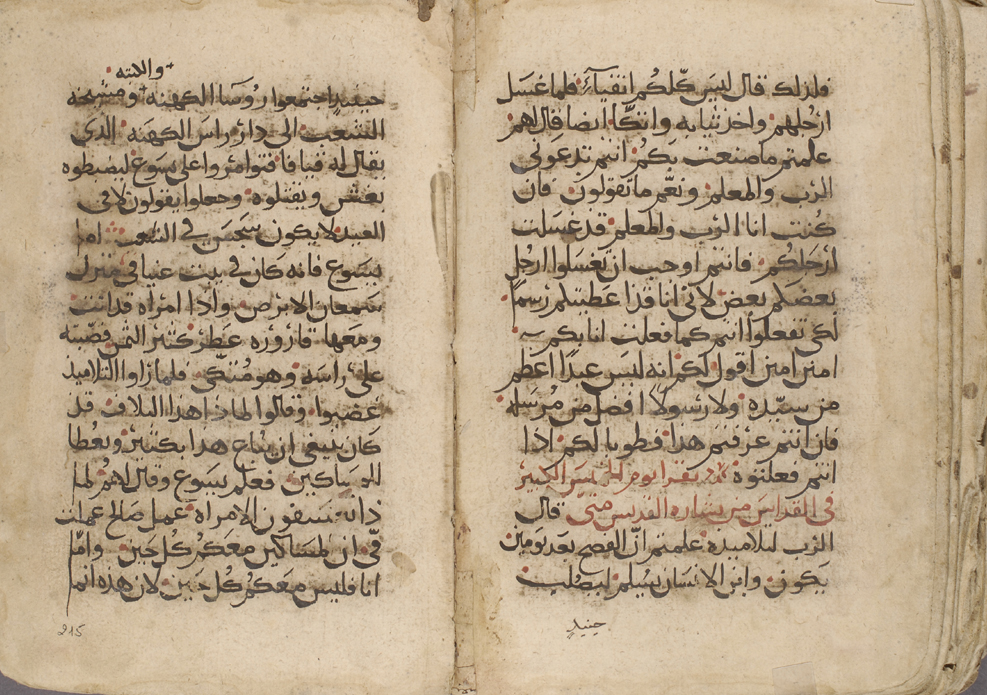 فلذلك قال ليس كلكم انقيآء فلما غسل
ارجلهم واخذ ثيابه واتكا ايضا قال لهم
علمتم ما صنعت بكم انتم تدعوني
الرب والمعلم ونعم ما تقولون فان
كنت انا الرب والمعلم قد غسلت
ارجلكم فانتم اوجب ان تغسلوا ارجل
بعضكم بعض لاني انا قد اعطيتكم رسما
لكي تفعلوا انتم كما فعلت انا بكم
امين امين اقول لكم انه ليس عبدا اعظم
من سيده ولا رسولا افضل من مرسله
فان انتم عرفتم هذا فطوبا لكم اذا
انتم فعلتموه يقرا يوم الخميس الكبير
في القداس من بشاره القديس متى قال
الرب لتلاميذه علمتم ان الفصح بعد يومين
يكون وابن الانسان يسلم ليصلب
حينيذ
والكتبه
حينيذ اجتمعوا روسا الكهنه ومشيخه
الشعب الى دار راس الكهنه الذي
يقال له قيافا فتوامروا على يسوع ليضبطوه
بغش ويقتلوه وجعلوا يقولون لا في
العيد لا يكون سجس في الشعب اما
يسوع فانه كان في بيت عنيا في منزل
سمعان الابرص واذا امراه قد اتت
ومعها قاروره عطر كثير الثمن فصبته
على راسه وهو متكي فلما راوا التلاميذ
غضبوا وقالوا لماذا هذا التلاف قد
كان ينبغي ان يباع هذا بكثير ويعطا
للمساكين فعلم يسوع وقال لهم لما
ذا تعنفون الامراه عمل صالح عملت
في ان المساكين معكم كل حين واما
انا فليس معكم كل حين لان هذه انما
215